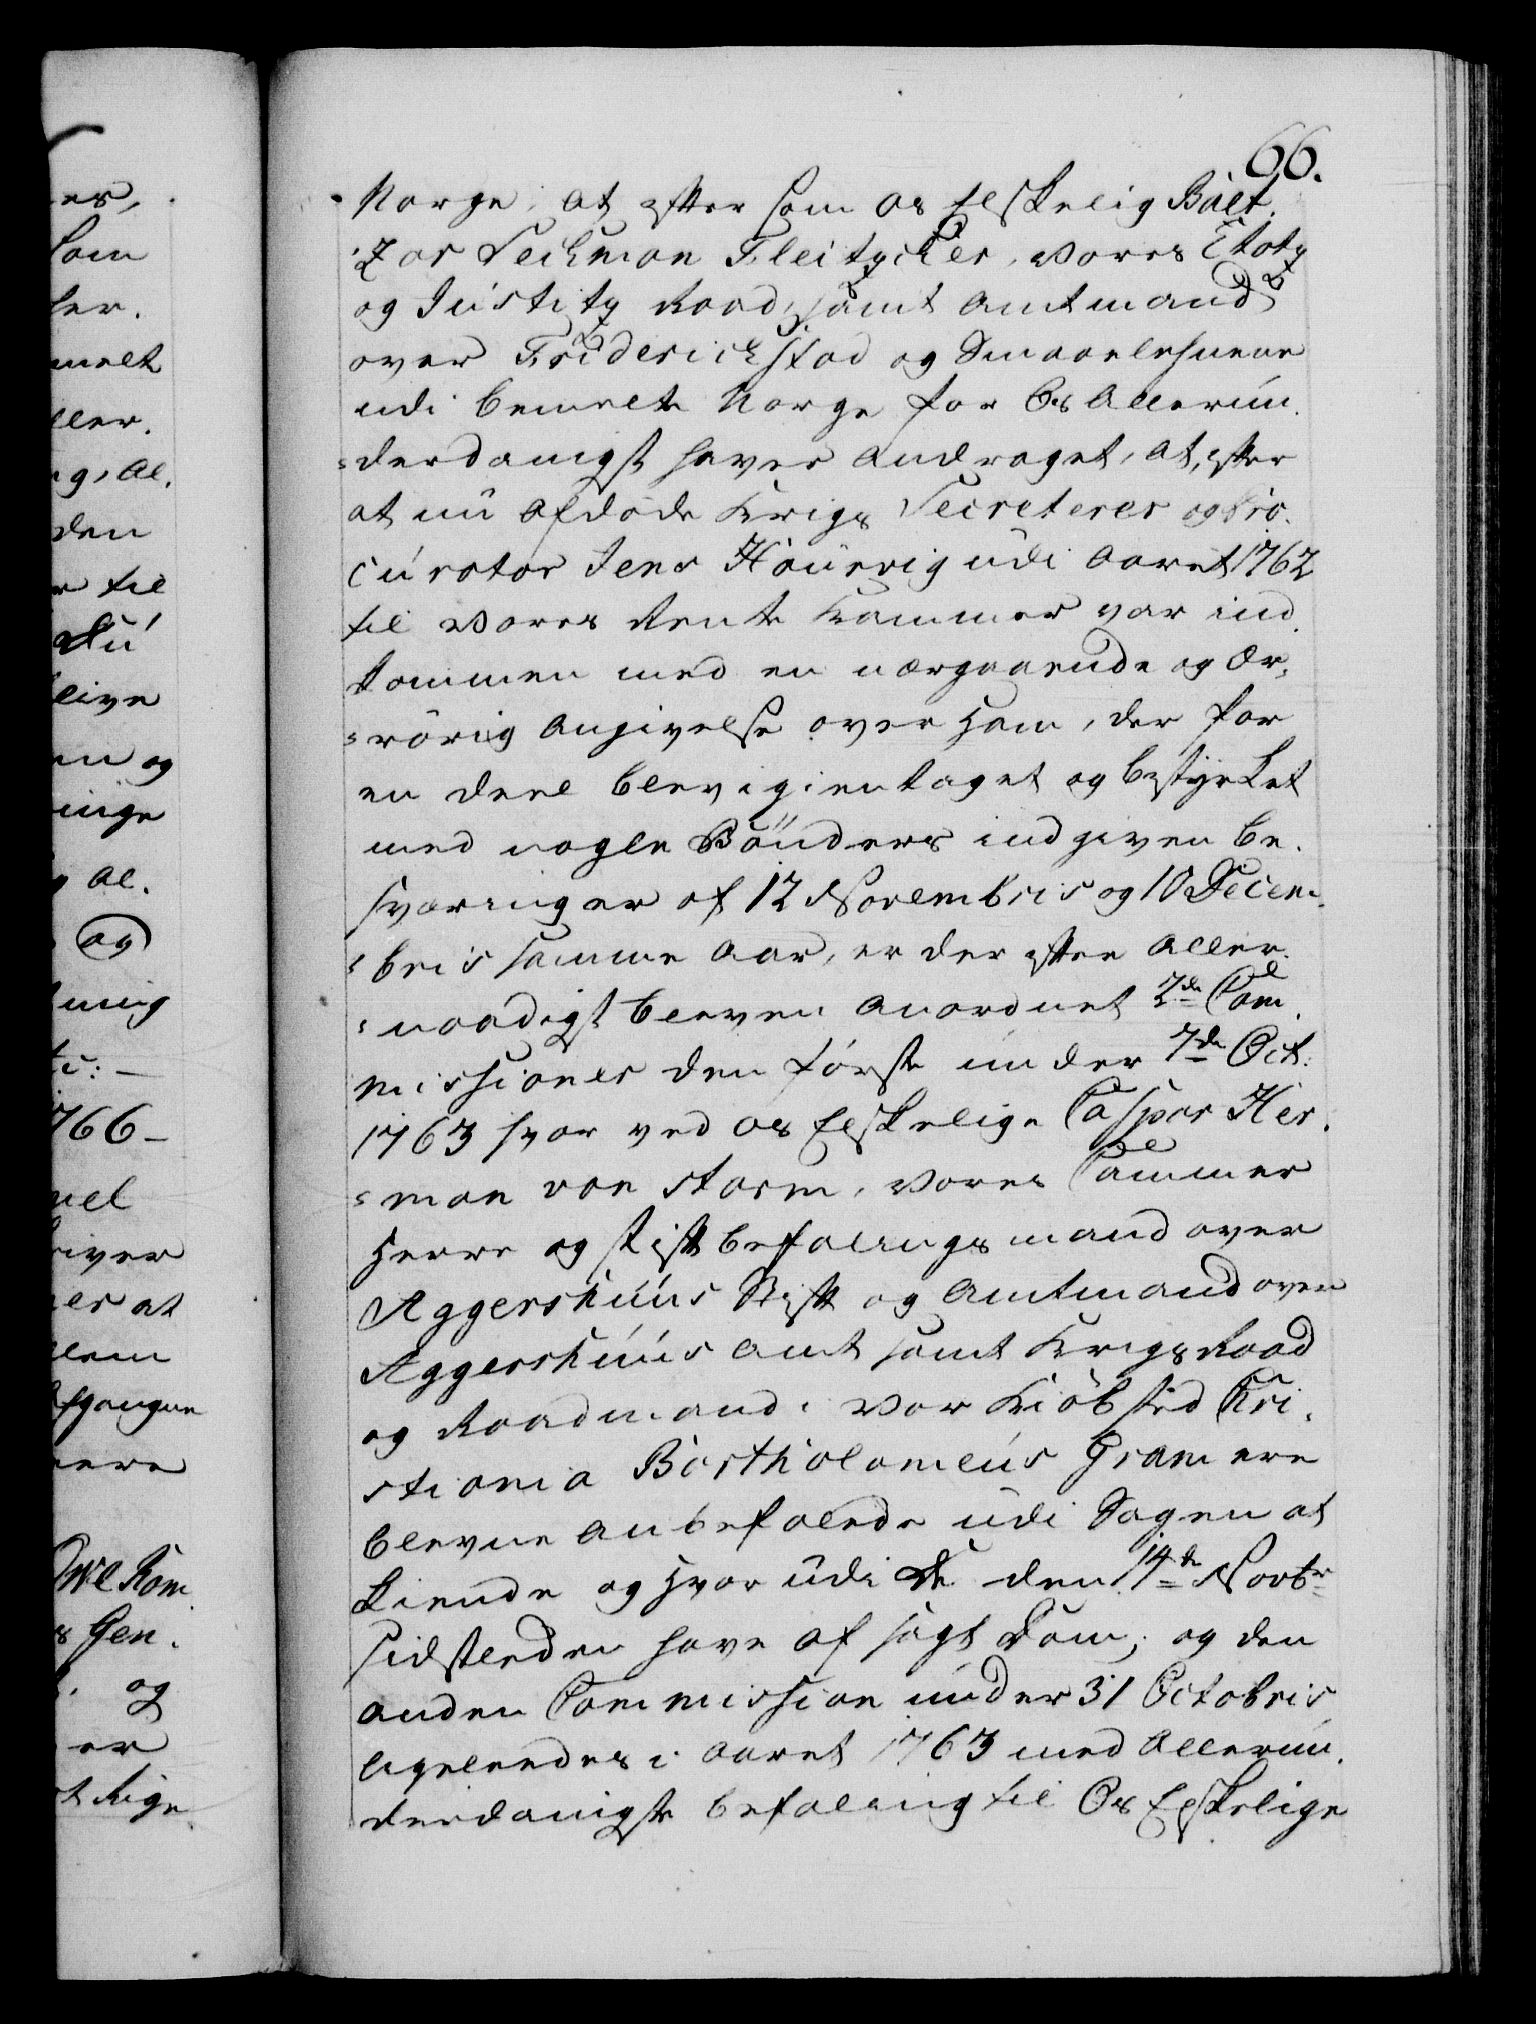 66.
Norge; at efter som os Elskelig Balt
zar Seckman Fleitscher, vores Etatz
og Justitz Raad, samt Amtmand
over Friderichstad og Smaaelehnene
udi bemelte Norge for Os Allerun
derdanigst haver andraget, at, efter
at nu afdøde Krigs Secreterer og Pro
curator Jens Hourvig udi Aaret 1762
til vores Rente Kammer var ind
kommen med en nærgaaende og Ær
rørig Angivelse over ham, der for
en deel blev igientaget og bestyrket
med nogle Bønders indgiven be
sværinger af 12 Novembris og 10 Decem
bris samme Aar, er der efter Aller
naadigst bleven anordnet 2de Com
missioner den første under 7de Oct:
1763 hvor ved os Elskelige Caspar Her
man von Storm, vores Cammer
Herre og Stiftbefalingsmand over
Aggershuus Stift og Amtmand over
Aggershuus Amt samt Krigs Raad
og Raadmand i vor Kiøbsted Chri
stiania Bartholomeus Gram ere
blevne anbefalede udi Sagen at
kiende og hvor udi de den 14de Novbr
sidstleden have afsagt Dom; og den
anden Commission under 31 Octobris
ligeleedes i Aaret 1763 med Allerun
derdanigste befaling til Os Elskelige
es,
som
er.
melt
ller.
ng, Al
den
til
Du
live
og
inge
Al.
og
ning
etc: —
1766 —
river
at
lem
Gen.
og
er
Rige